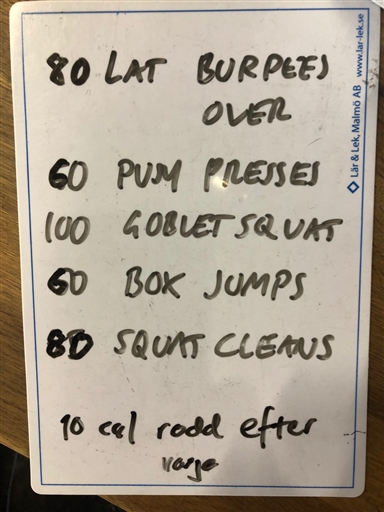 80 LAT BURPEES
OVER
60 PUM PRESSES
100 GOBLET SQUAT
60 BOX JUMPS
80 SQUAT CLEANS
10 cal rodd efter
varje
Lär & Lek, Malmö AB www.lar-lek.se